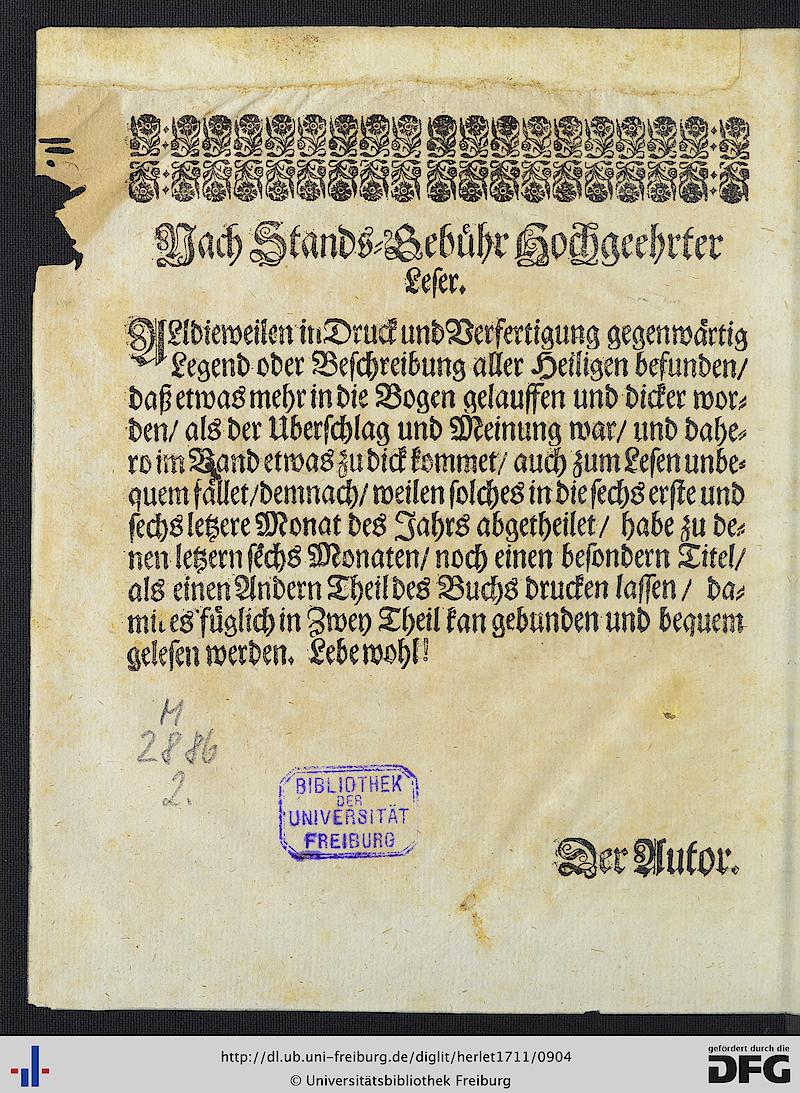 Nach Stands-Gebühr Hochgeehrter
Leser.
ALldieweilen in Druck und Verfertigung gegenwärtig
Legend oder Beschreibung aller Heiligen befunden/
daß etwas mehr in die Bogen gelauffen und dicker wor-
den/ als der Uberschlag und Meinung war/ und dahe-
ro im Band etwas zu dick kommet/ auch zum Lesen unbe-
quem fället/ demnach/ weilen solches in die sechs erste und
sechs letzere Monat des Jahrs abgetheilet/ habe zu de-
nen letzern sechs Monaten/ noch einen besondern Titel/
als einen Andern Theil des Buchs drucken lassen/ da-
mit es füglich in Zwey Theil kan gebunden und bequem
gelesen werden. Lebe wohl!
M
2886
2.
BIBLIOTHEK
DER
UNIVERSITÄT
FREIBURG
Der Autor.
http://dl.ub.uni-freiburg.de/diglit/herlet1711/0904
© Universitätsbibliothek Freiburg
gefördert durch die
DFG